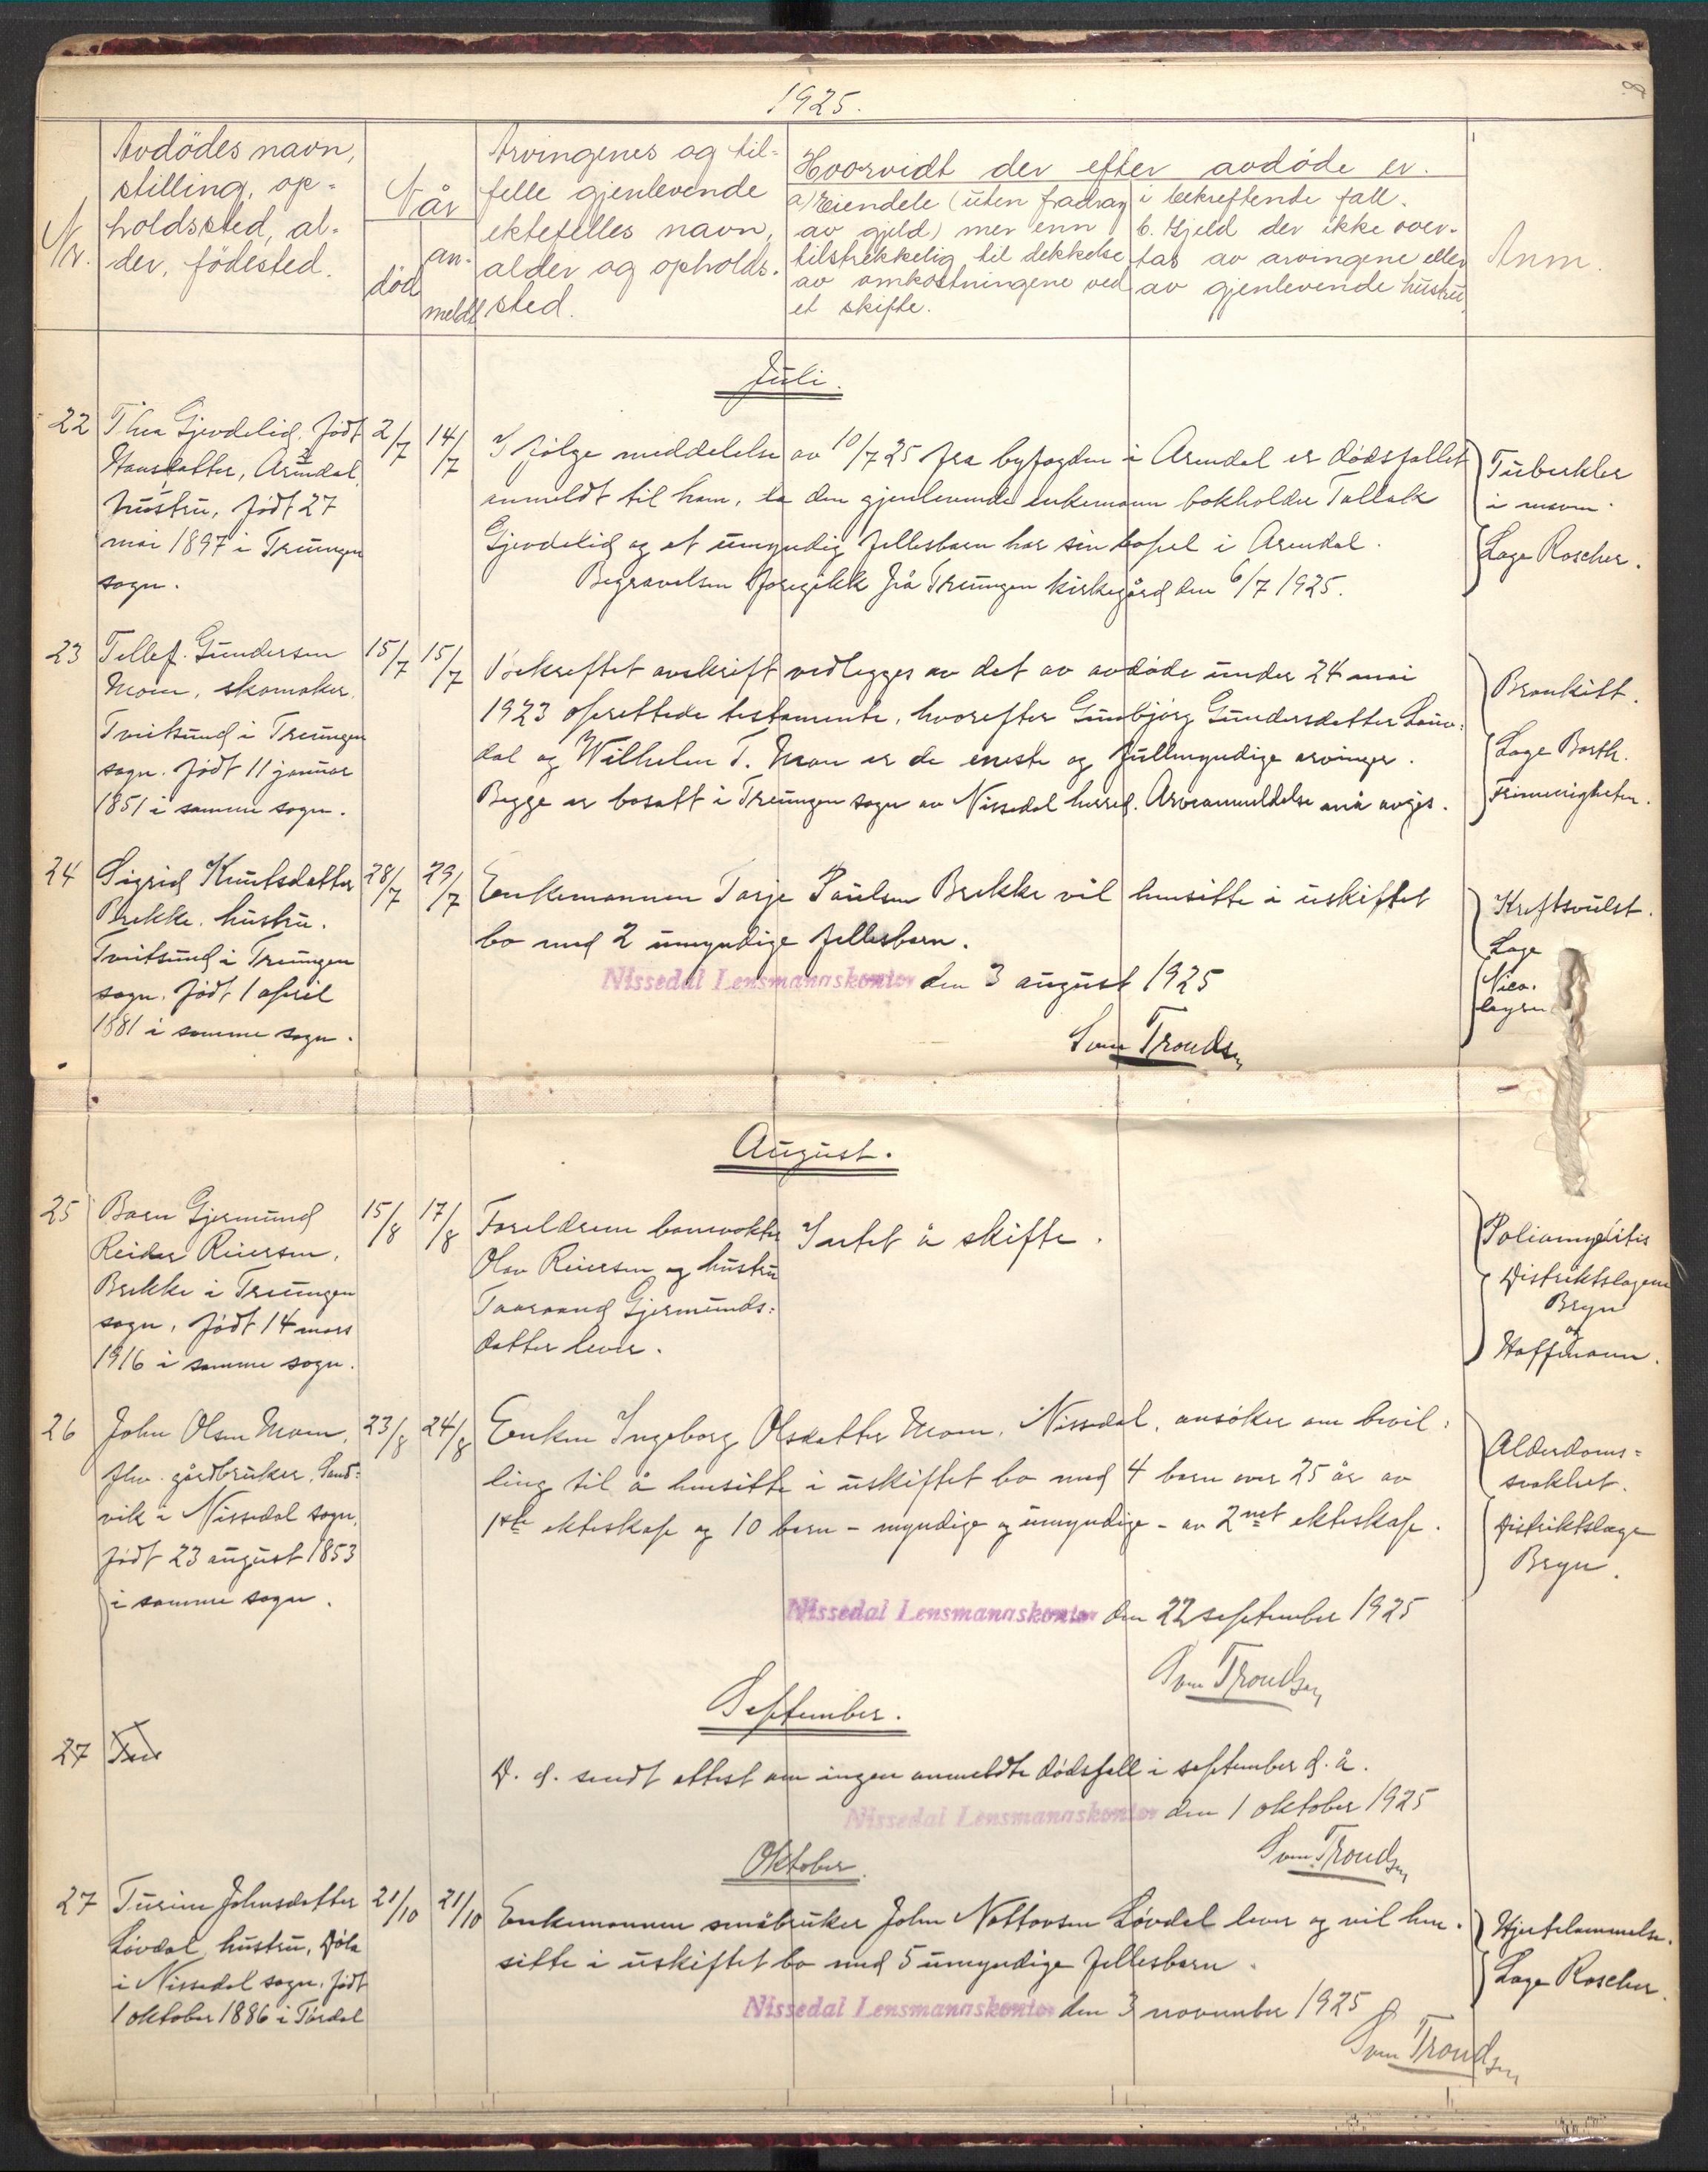 8.
1925.
Nr.
Avdödes navn,
stilling, op-
holdssted, al-
der, födested.
Når
död
an-
meldt
Arvingenes og til-
felle gjenlevende
ektefelles navn,
alder og opholds-
sted.
Hvorvidt der efter avdöde er.
a) Eiendele (uten fradrag
av gjeld) mer enn
tilstrekkelig til dekkelse
av omkostningene ved
et skifte.
i bekreftende fall.
b. Gjeld der ikke over-
tas av arvingene eller
av gjenlevende hustru.
Anm.
Juli.
22
Thea Gjevdelid, födt
Hansdatter, Arendal,
hustru, födt 27
mai 1897 i Treungen
sogn.
2/7
14/7
Ifölge meddelelse av 10/7 25 fra byfogden i Arendal er dödsfallet
anmeldt til ham, da den gjenlevende enkemann bokholder Tallak
Gjevdelid og et umyndig fellesbarn har sin bopel i Arendal.
Begravelsen foregikk på Treungen kirkegård den 6/7 1925.
Tuberkler
i maven.
Læge Roscher.
23
Tellef Gundersen
Moen, skomaker,
Tveitsund i Treungen
sogn. Födt 11 januar
1851 i samme sogn.
15/7
15/7
Bekreftet avskrift vedlegges av det av avdöde under 24 mai
1923 oprettede testamente, hvorefter Gunbjörg Gundersdatter Lauv-
dal og Wilhelm T. Moen er de eneste og fullmyndige arvinger.
Begge er bosatt i Treungen sogn av Nissedal herred. Arveanmeldelse må avgis.
Bronkitt.
Læge Barth.
Frimenigheten.
24
Sigrid Knutsdatter
Brekke, hustru.
Tveitsund i Treungen
sogn. Födt 1 april
1881 i samme sogn.
28/7
29/7
Enkemannen Tarje Paulsen Brekke vil hensitte i uskiftet
bo med 2 umyndige fellesbarn.
Nissedal Lensmannskontor den 3 august 1925
Sven Trondsen
Kreftsvulst.
Læge
Nico-
laysen
August.
25
Barn Gjermund
Reidar Reiersen,
Brekke i Treungen
sogn, födt 14 mars
1916 i samme sogn.
15/8
17/8
Foreldrene banevokter
Olav Reiersen og hustru
Taarand Gjermunds-
datter lever.
Intet å skifte.
Poliomyelitis
Distriktslægene
Bryn
og
Hoffmann.
26
John Olsen Moen,
fhv. gårdbruker, Sand-
vik i Nissedal sogn,
födt 23 august 1853
i samme sogn.
23/8
24/8
Enken Ingeborg Olsdatter Moen, Nissedal, ansöker om bevil-
ling til å hensitte i uskiftet bo med 4 barn over 25 år av
1ste ekteskap og 10 barn - myndige og umyndige - av 2net ekteskap.
Alderdoms-
svakhet.
Distriktslæge
Bryn.
Nissedal Lensmannskontor den 22 september 1925
Sven Trondsen
September.
27
D. d. sendt attest om ingen anmeldte dödsfall i september d. å.
Nissedal Lensmannskontor den 1 oktober 1925
Sven Trondsen
Oktober.
27
Turine Johnsdatter
Lövdal, hustru, Döla
i Nissedal sogn, födt
1 oktober 1886 i Tördal
21/10
21/10
Enkemannen småbruker John Nottovsen Lövdal lever og vil hen-
sitte i uskiftet bo med 5 umyndige fellesbarn.
Hjertelammelse.
Læge Roscher.
Nissedal Lensmannskontor den 3 november 1925
Sven Trondsen